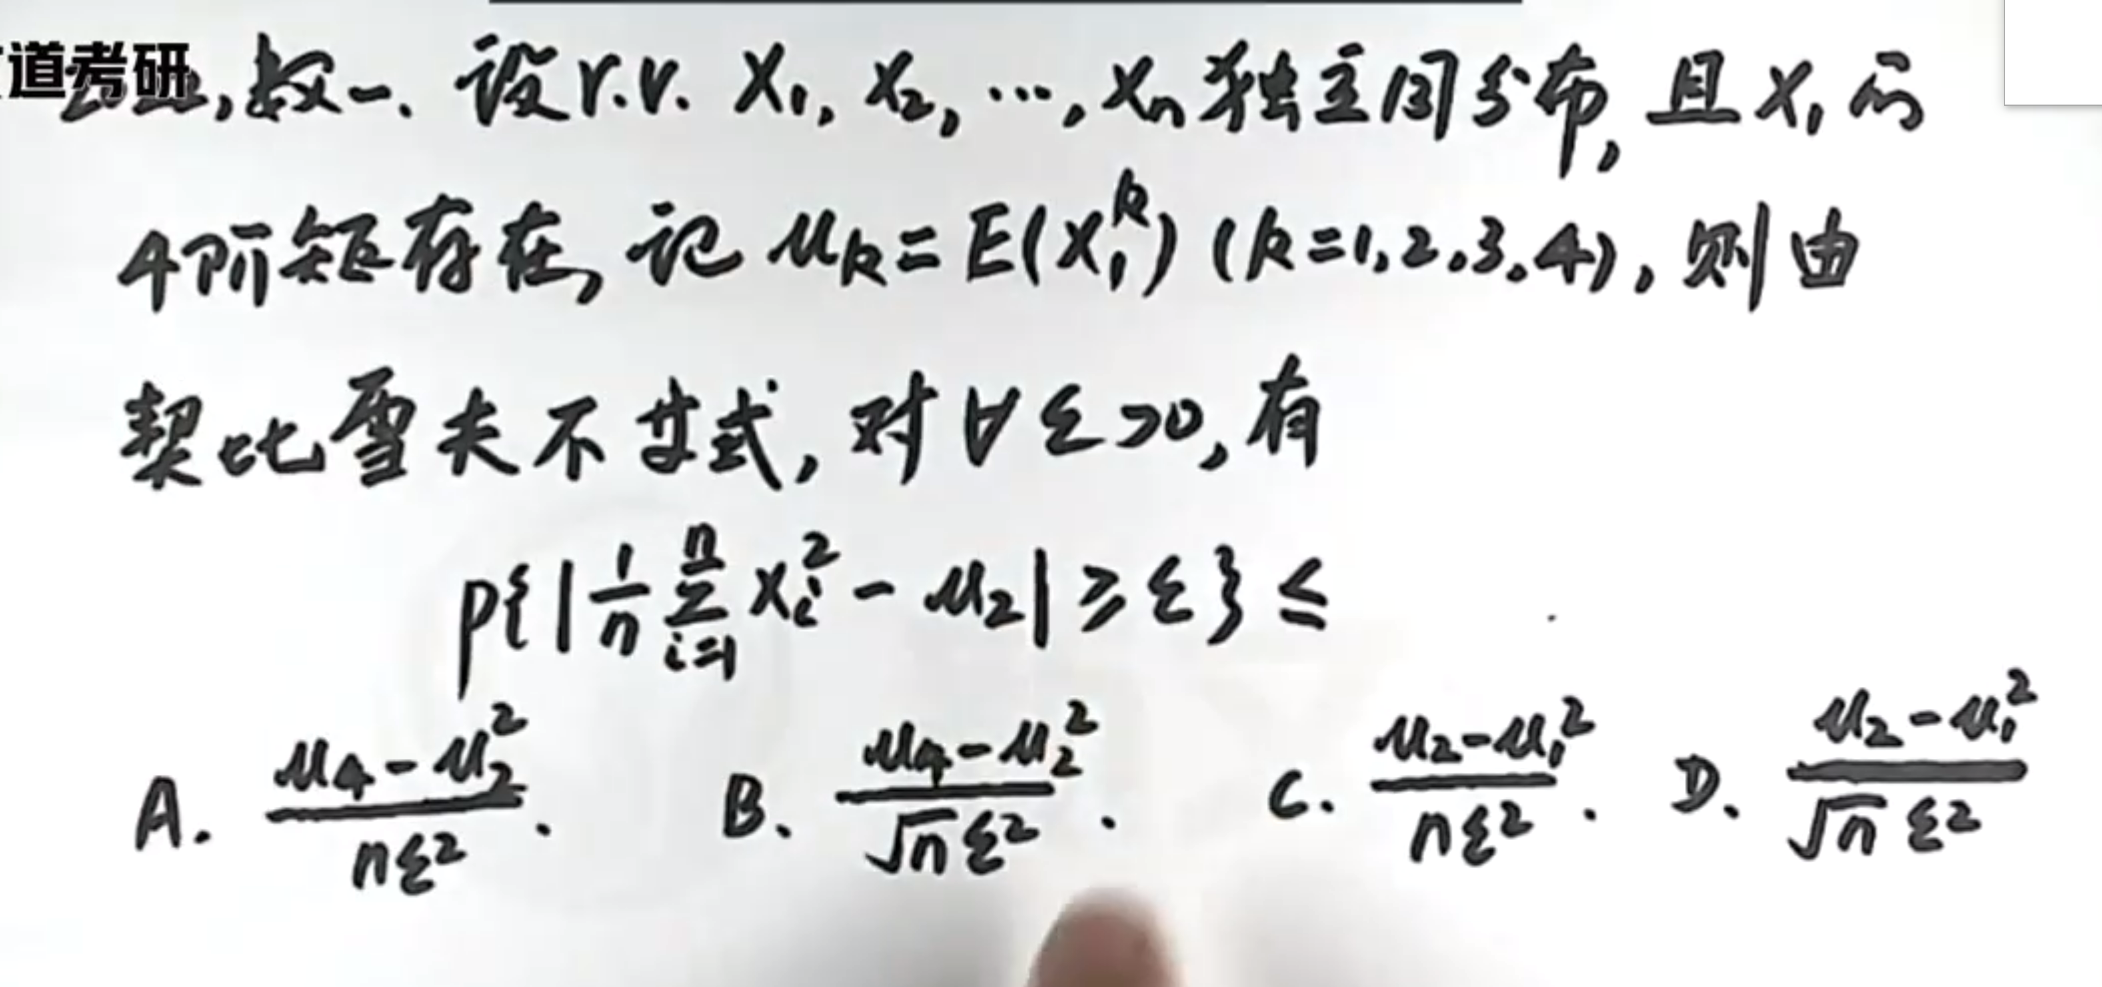 道考研
,数一. 设r.v. X₁, X₂, …, Xₙ 独立同分布, 且X₁的
4阶矩存在, 记 μₖ = E(X₁ᵏ) (k=1,2,3,4), 则由
契比雪夫不等式, 对∀ε>0, 有
P{|1/n ∑ᵢ₌₁ⁿ Xᵢ² - μ₂| ≥ ε} ≤
A. (μ₄-μ₂²)/(nε²). B. (μ₄-μ₂²)/(√n ε²). C. (μ₂-μ₁²)/(nε²). D. (μ₂-μ₁²)/(√n ε²)